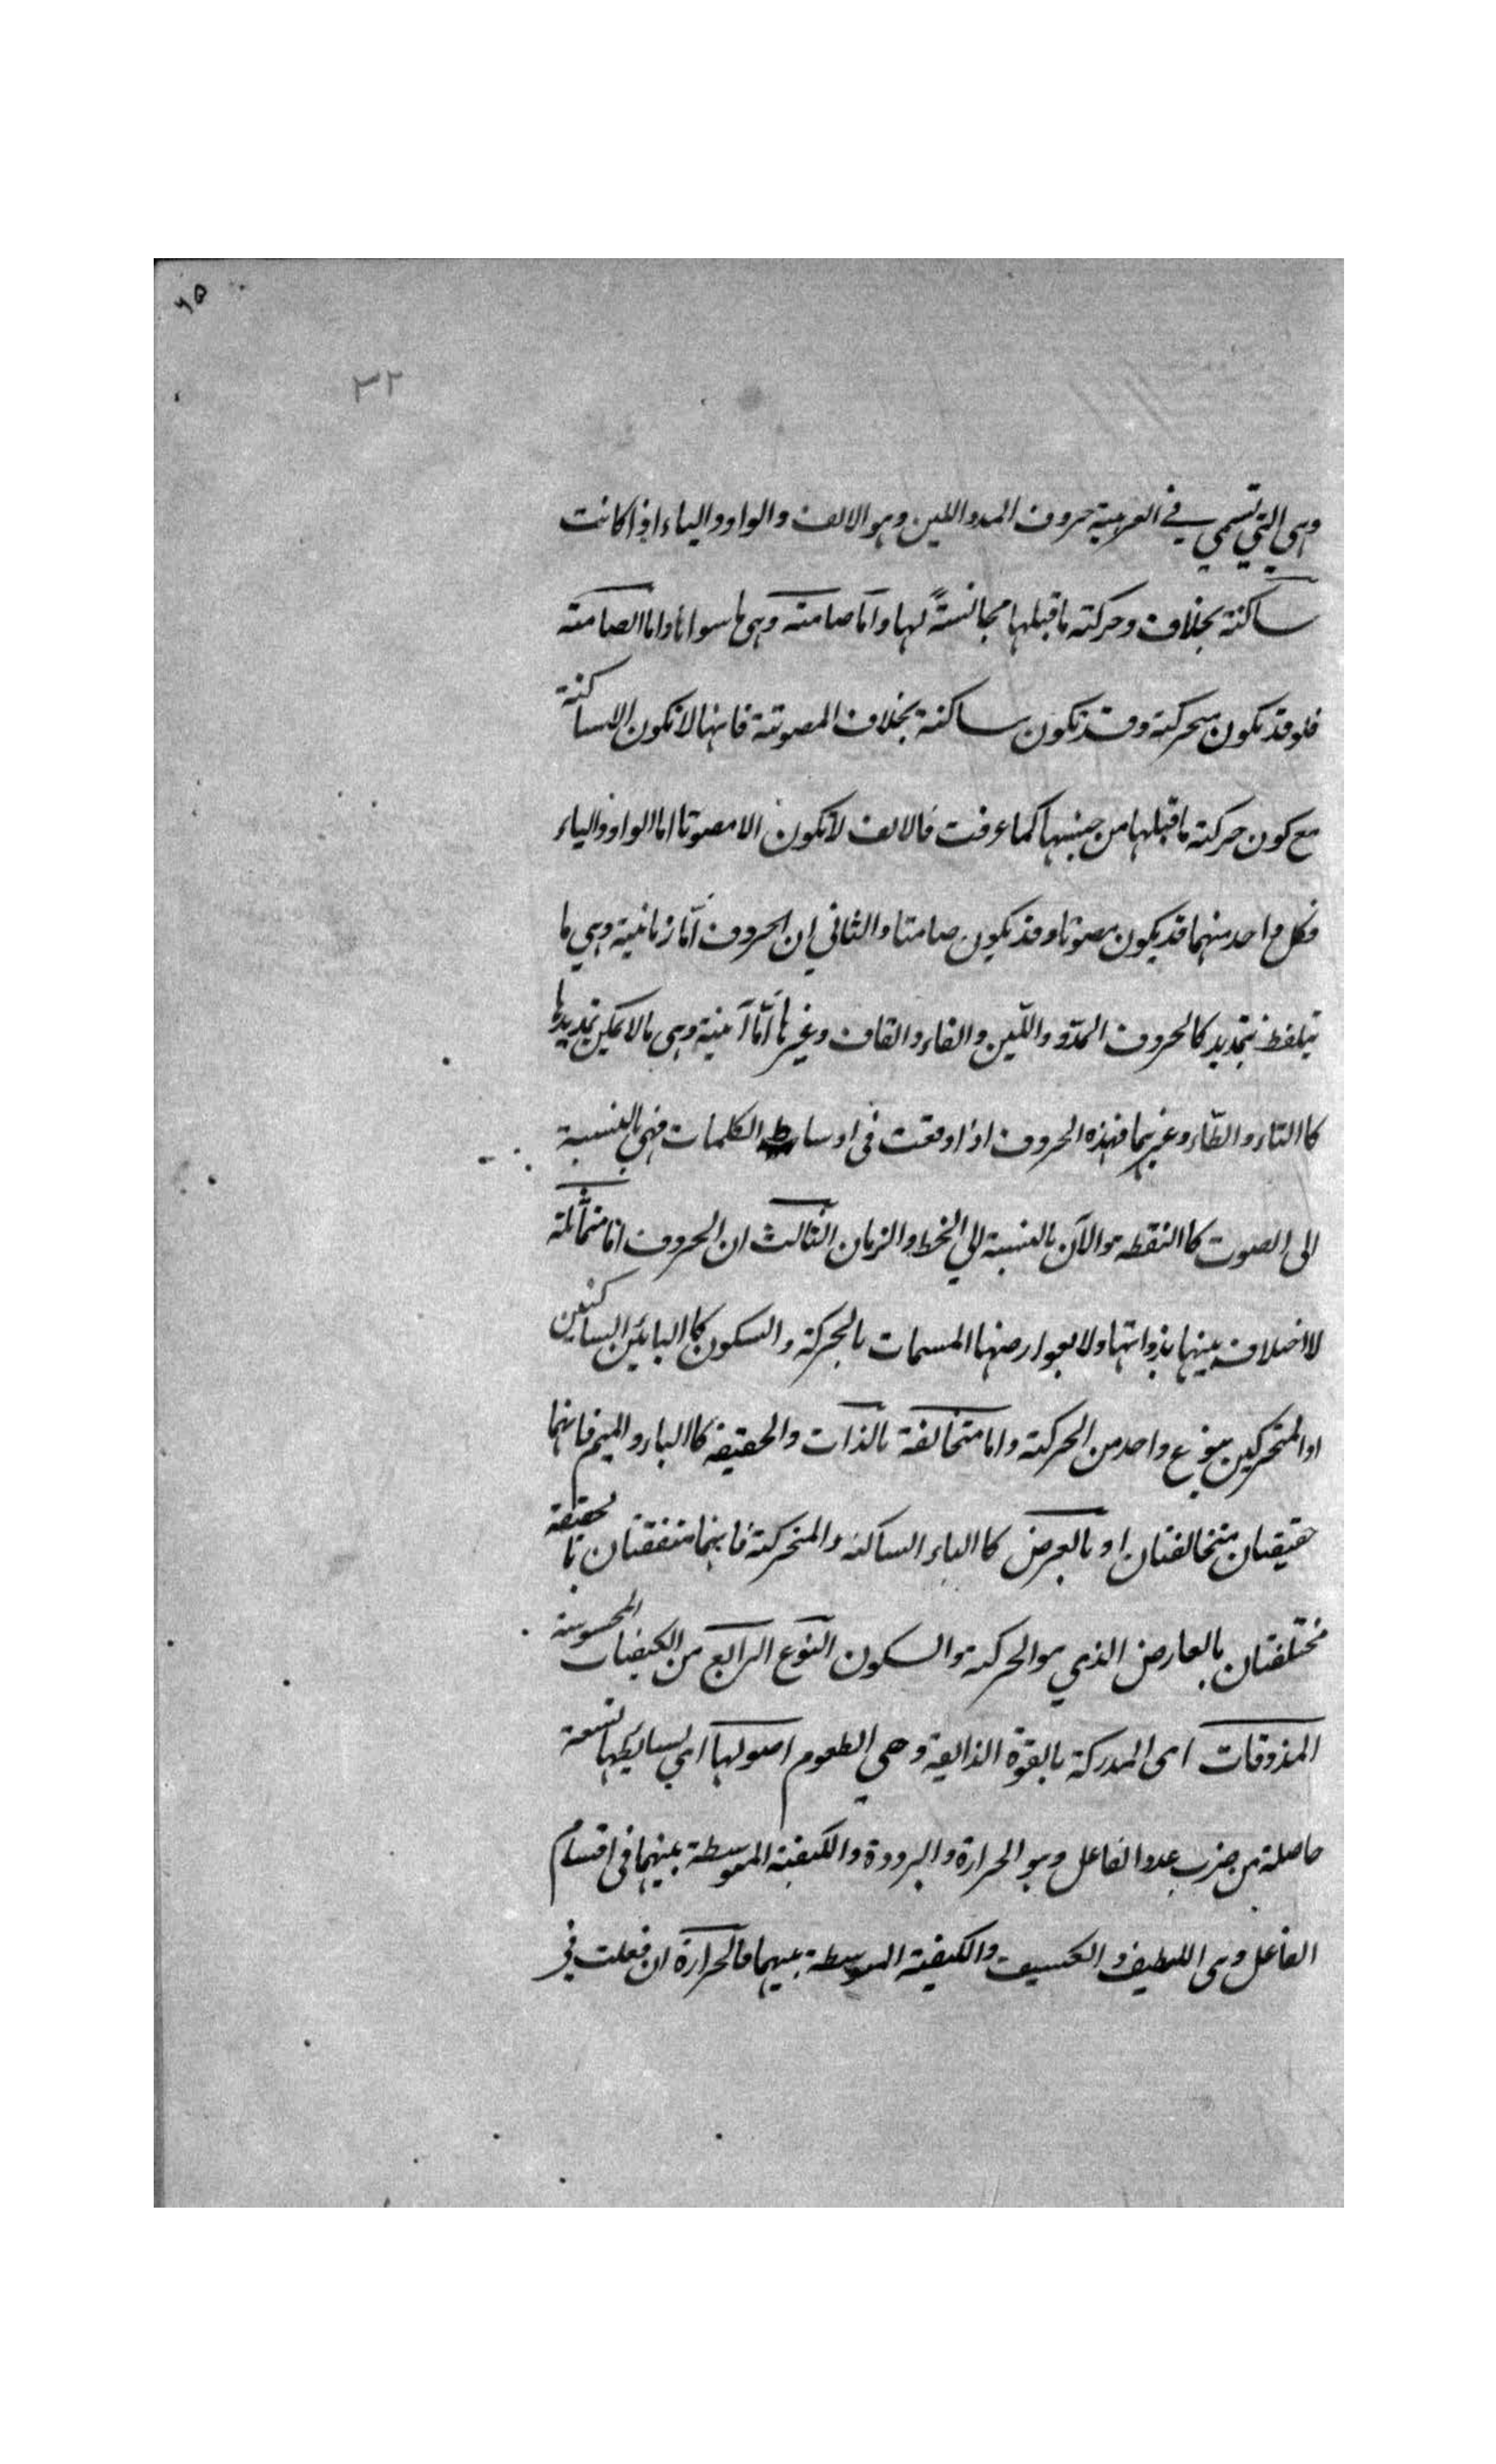 ٦٥
٣٢
وهي التي تسمى في العربية حروف المد واللين وهو الالف والواو والياء اذا كانت
ساكنة بخلاف وحركة ما قبلها مجانسةً لها واما صامتة وهى ما سواها واما الصامتة
فلو قد تكون متحركة وقد تكون ساكنة بخلاف المصوتة فانها لا تكون الا ساكنة
مع كون حركة ما قبلها من جنسها كما عرفت فالالف لا تكون الا مصوتا اما الواو والياء
فكل واحد منهما قد يكون مصوتا وقد يكون صامتا والثاني ان الحروف اما زمانية وهي ما
تتلفظ بتمديد كالحروف المدّ واللّين والفاء والقاف وغيرها امّا آنية وهى ما لا يمكن تمديدها
كا التاء والطاء وغيرهما فهذه الحروف اذا وقعت فى اوساط الكلمات فهى بالنسبة
الى الصوت كا النقطة والآن بالنسبة الى الخط والزمان الثالث ان الحروف اما متماثلة
لا اختلاف بينها بذواتها ولا بعوارضها المسمات بالحركة والسكون كا البائين الساكنين
او المتحركين بنوع واحد من الحركة واما متخالفة بالذات والحقيقة كا الباء والميم فانهما
حقيقتان متخالفتان او بالعرض كا الباء الساكنة والمتحركة فانهما متفقتان بالحقيقة
مختلفتان بالعارض الذي هو الحركة والسكون النوع الرابع من الكيفيات المحسوسة
المذوقات اى المدركة بالقوة الذايقة وهي الطعوم اصولها اى بسايطها تسعة
حاصلة من ضرب عدد الفاعل وهو الحرارة والبرودة والكيفية المتوسطة بينهما فى اقسام
الفاعل وهى اللطيف والكسيف والكيفية المتوسطة بينهما فالحرارة ان فعلت في